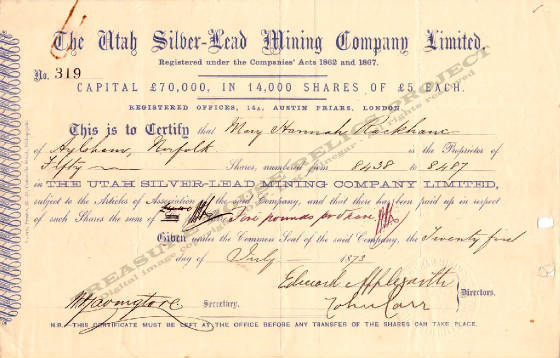 The Utah Silver-Lead Mining Company Limited.
Registered under the Companies' Acts 1862 and 1867.
No. 319
CAPITAL £70,000, IN 14,000 SHARES OF £5 EACH.
REGISTERED OFFICES, 14A, AUSTIN FRIARS, LONDON.
This is to Certify that Mary Hannah Rackham
of Aylsham, Norfolk is the Proprietor of
Fifty Shares, numbered from 8438 to 8487
in THE UTAH SILVER-LEAD MINING COMPANY LIMITED,
subject to the Articles of Association of the said Company, and that there has been paid up in respect
of such Shares the sum of Five pounds per Share.
Given under the Common Seal of the said Company, the Twenty first
day of July 1873
Edward Applegarth
John Carr
Directors.
Secretary.
N.B. THIS CERTIFICATE MUST BE LEFT AT THE OFFICE BEFORE ANY TRANSFER OF THE SHARES CAN TAKE PLACE.